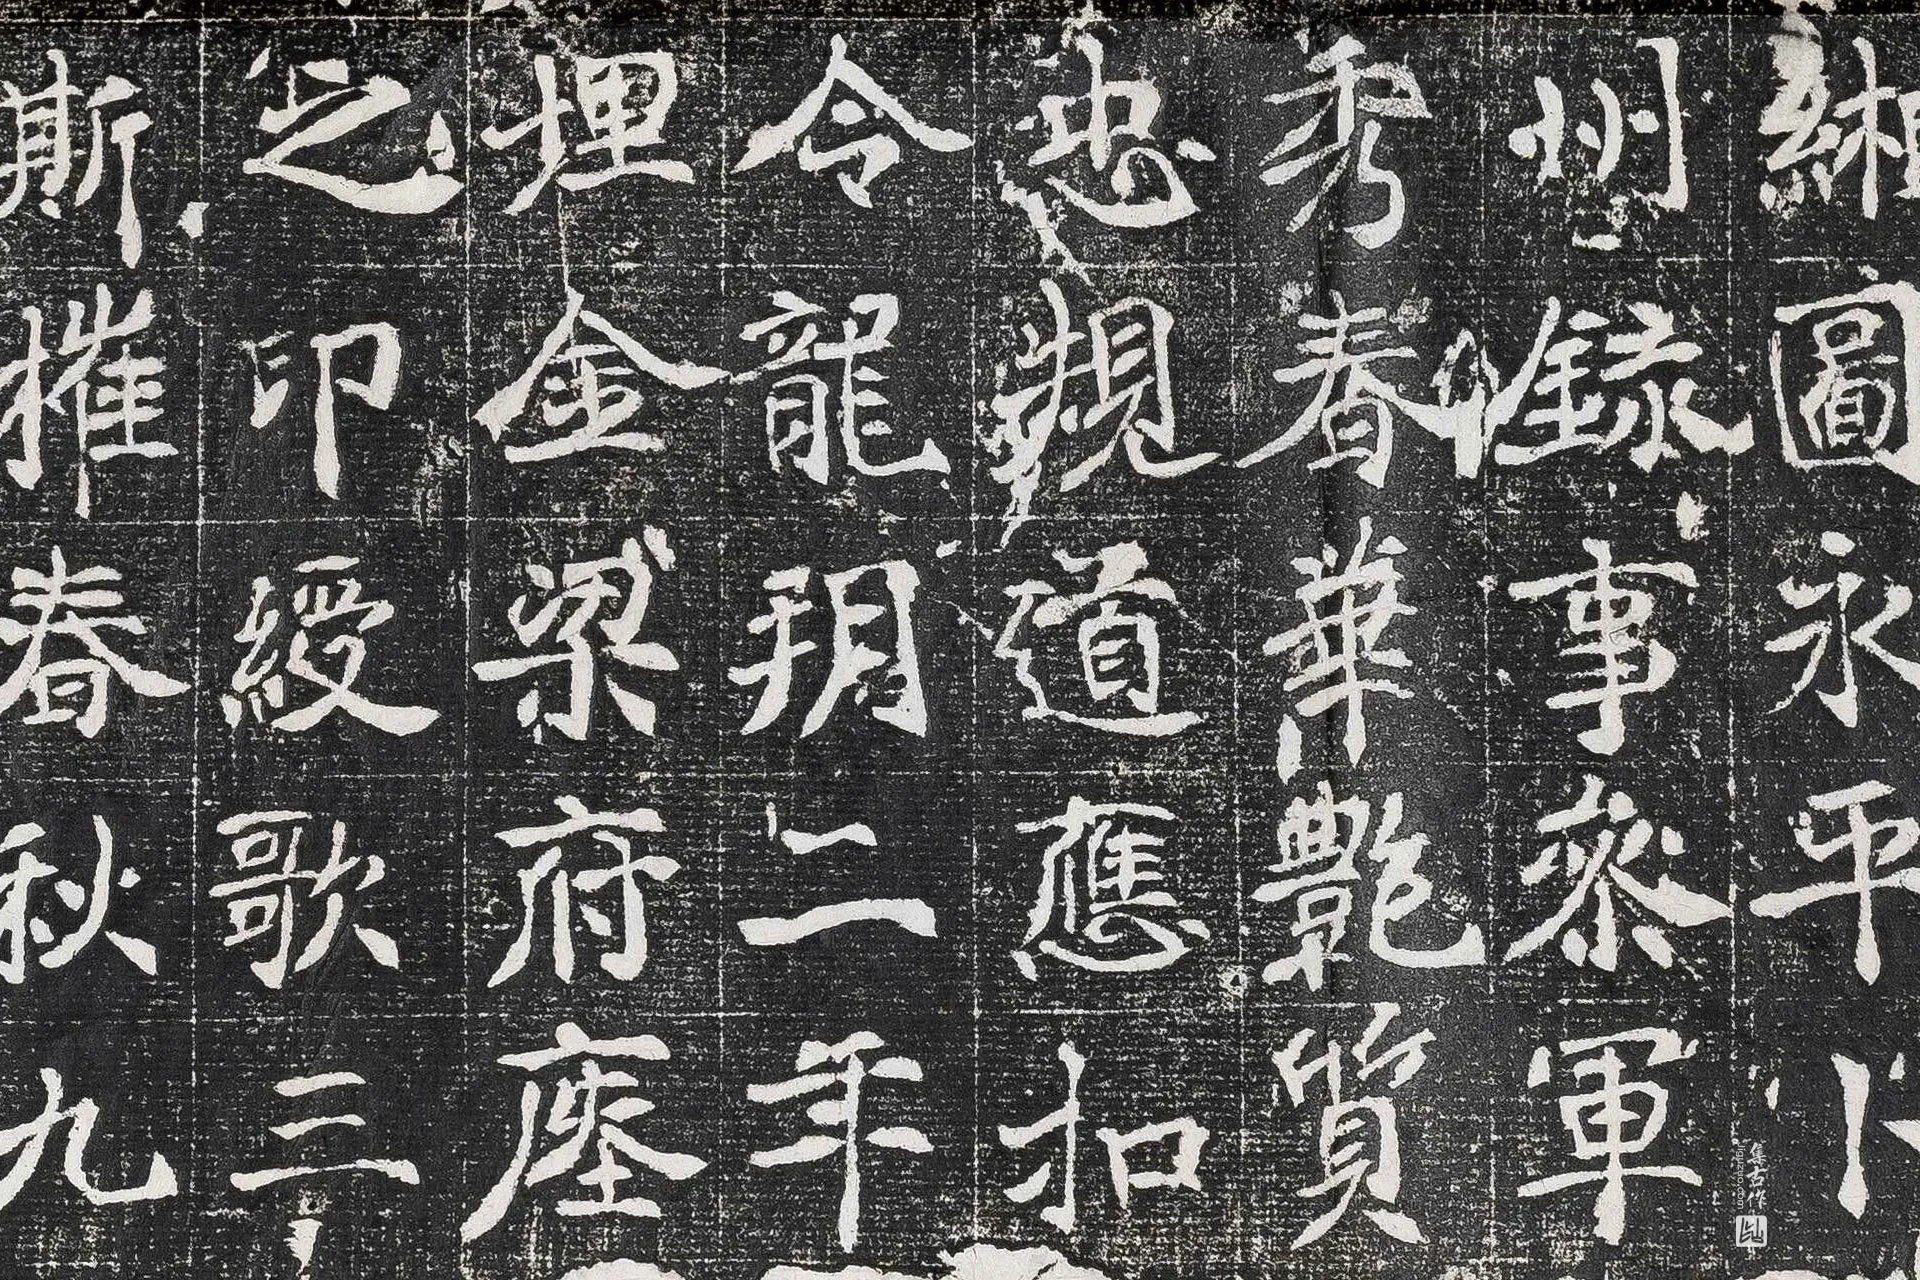 緗圖永平
州錄事叅軍
秀春華艷質
忠規道應扣
令龍朔二年
埋金梁府座
之印綬歌三
斯摧春秋九
集古作